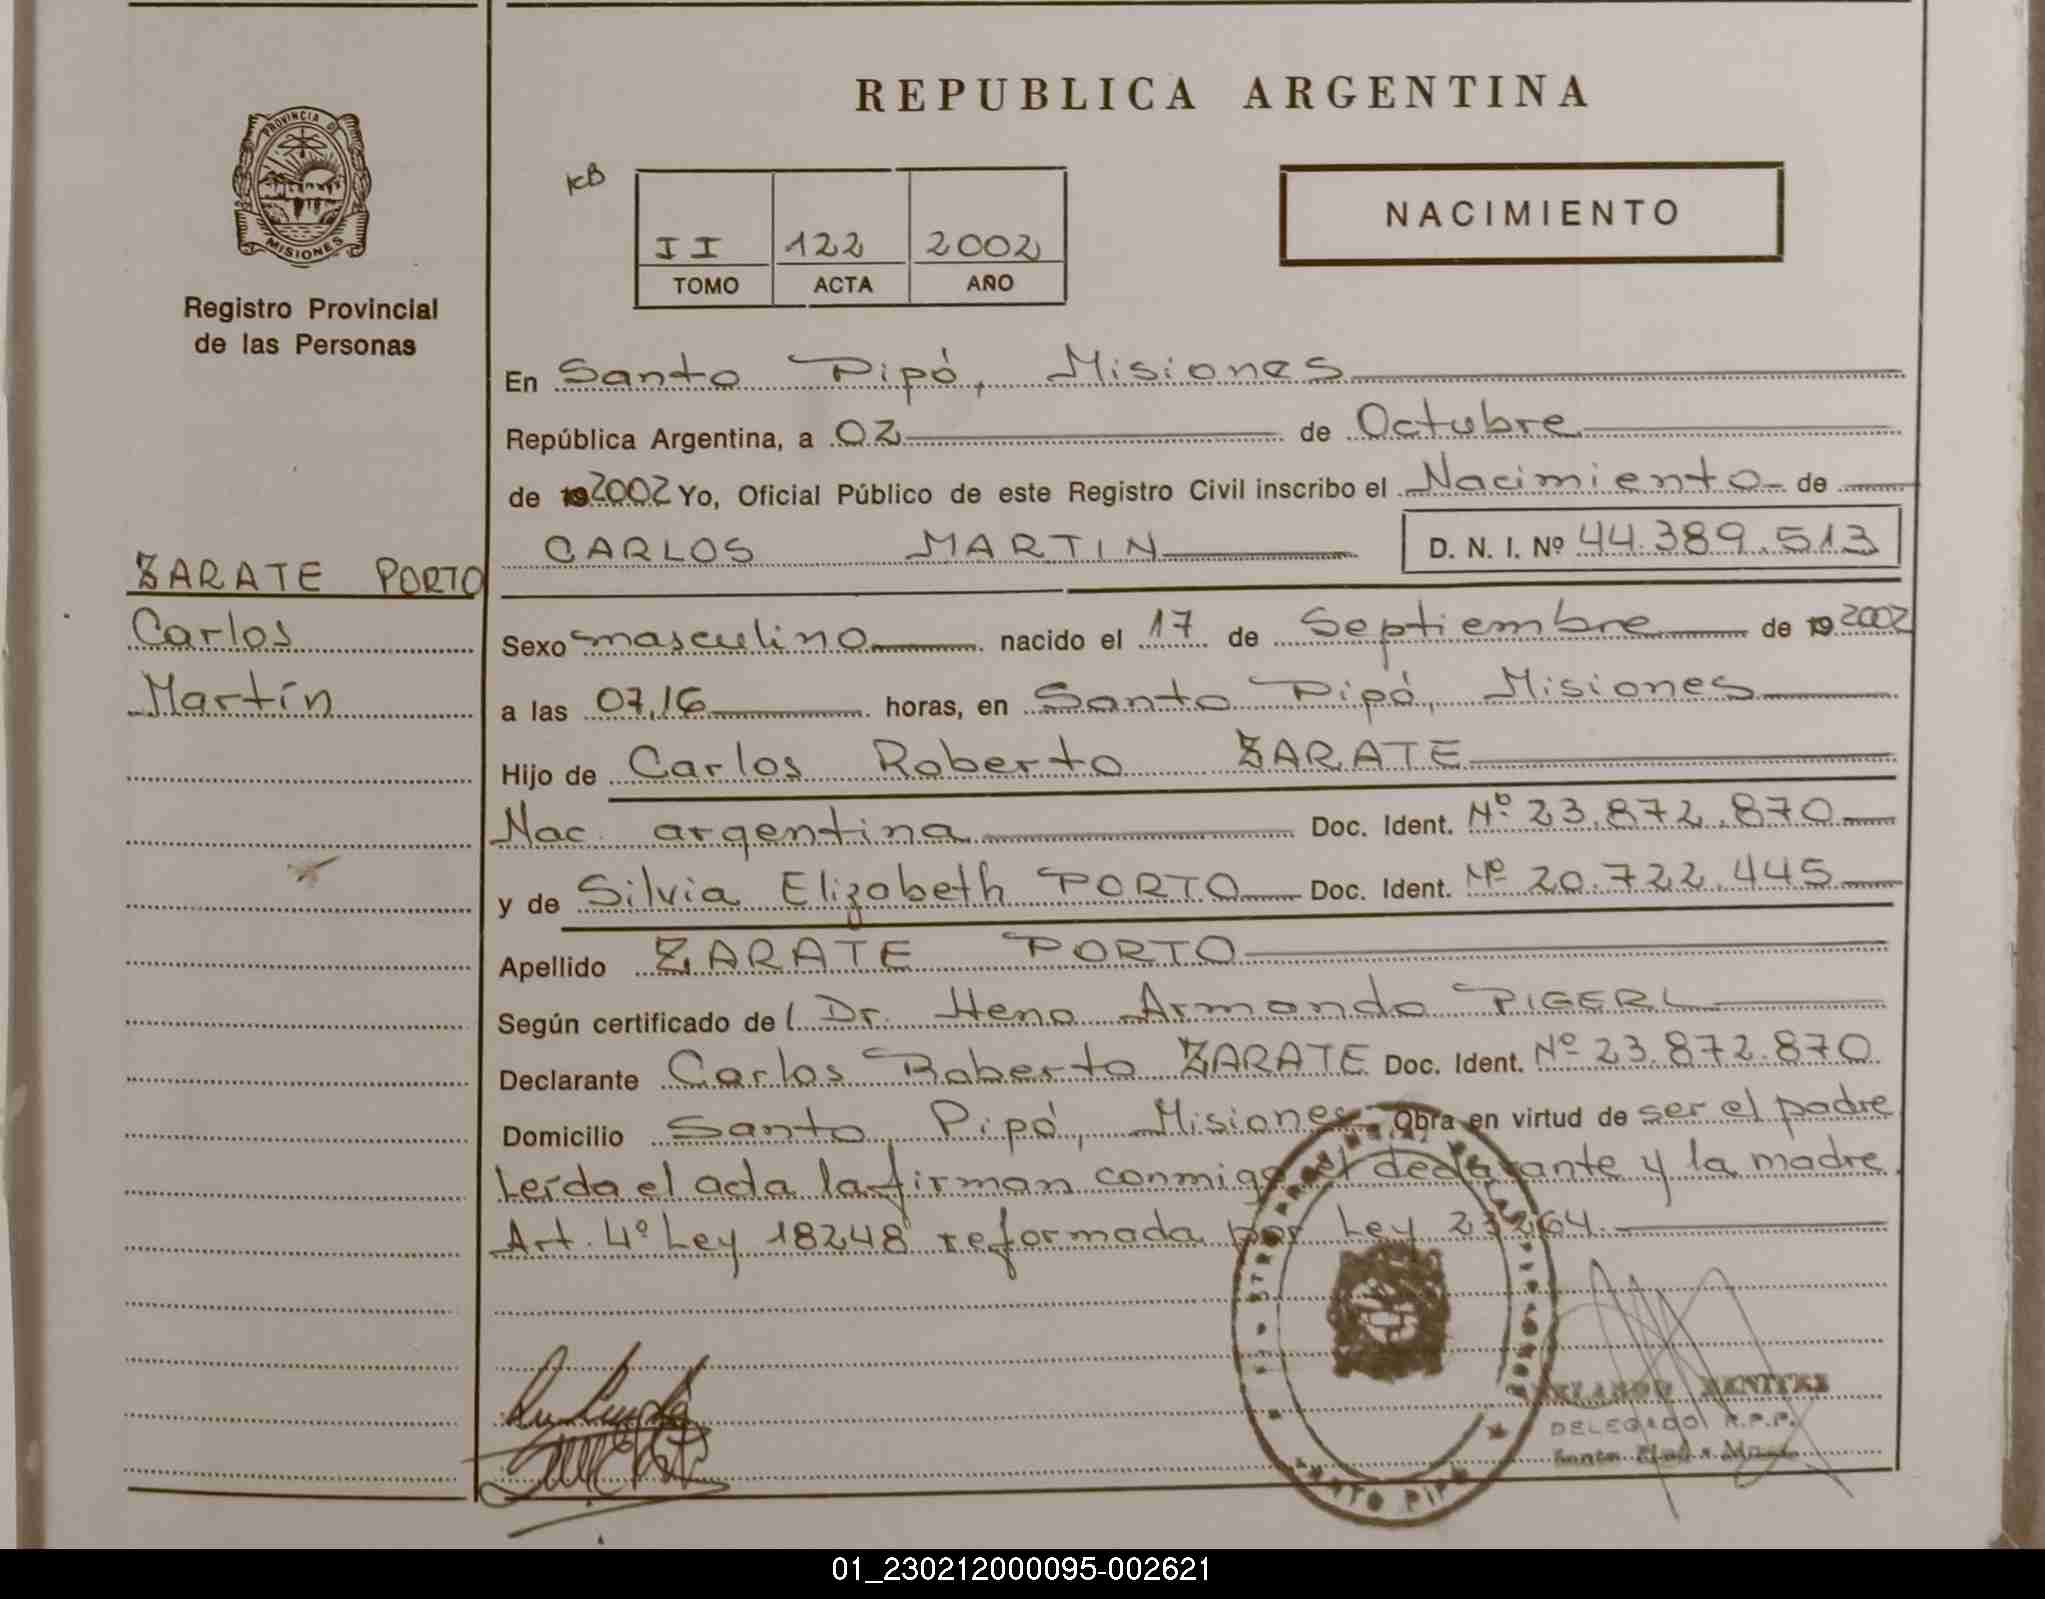 REPUBLICA ARGENTINA
PROVINCIA DE
MISIONES
Registro Provincial
de las Personas
KB
II 122 2002
TOMO ACTA AÑO
NACIMIENTO
En Santo Pipó, Misiones
República Argentina, a 02 de Octubre
de 19 2002 Yo, Oficial Público de este Registro Civil inscribo el Nacimiento de
CARLOS MARTIN D. N. I. Nº 44.389.513
ZARATE PORTO
Carlos
Martín
Sexo masculino nacido el 17 de Septiembre de 19 2002
a las 07,16 horas, en Santo Pipó, Misiones
Hijo de Carlos Roberto ZARATE
Nac. argentina Doc. Ident. Nº 23.872.870
y de Silvia Elizabeth PORTO Doc. Ident. Nº 20.722.445
Apellido ZARATE PORTO
Según certificado del Dr. Heno Armando PIGERL
Declarante Carlos Roberto ZARATE Doc. Ident. Nº 23.872.870
Domicilio Santo Pipó, Misiones Obra en virtud de ser el padre
Leída el acta la firman conmigo el declarante y la madre
Art. 4º Ley 18248 reformada por Ley 23264.
BENITEZ
DELEGADO R.P.P.
SANTO PIPO
01_230212000095-002621